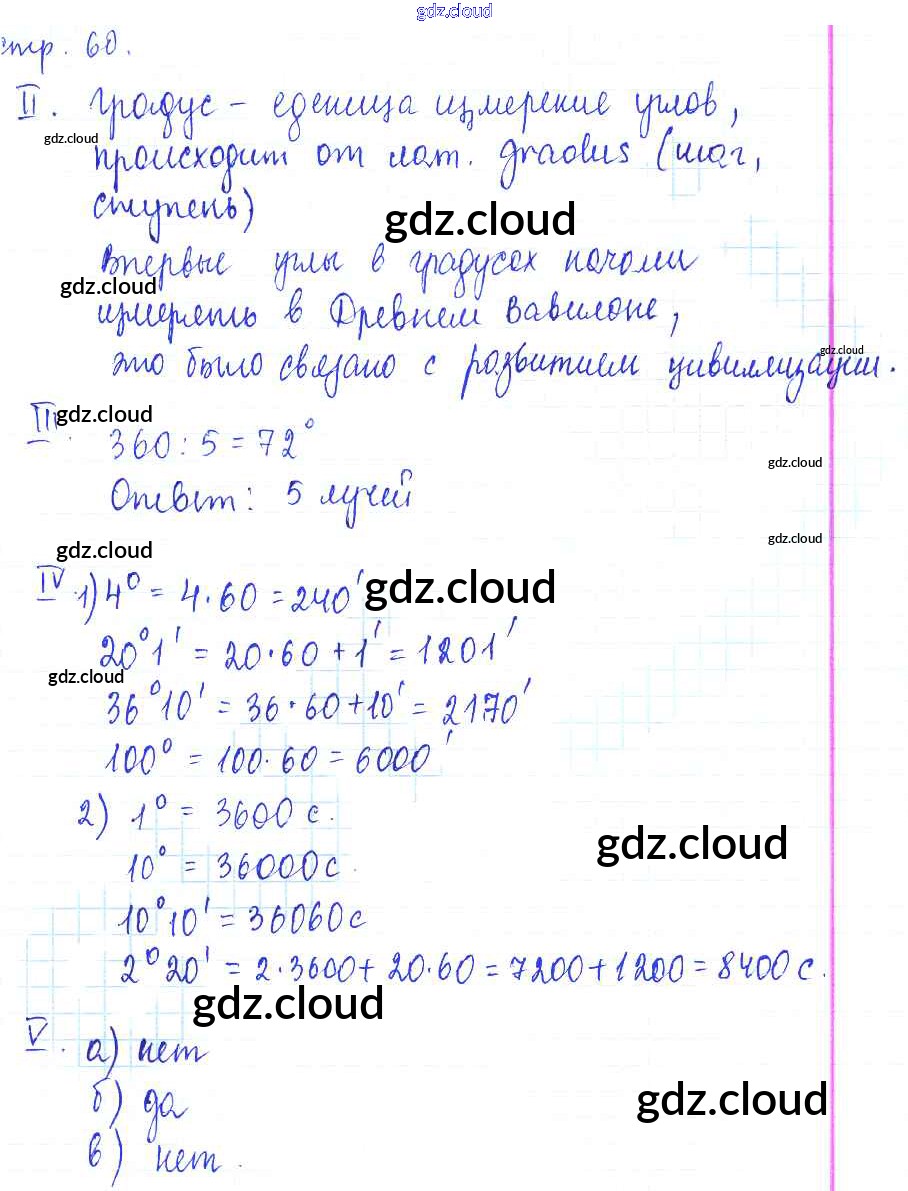 gdz.cloud
стр. 60.
II. Градус – еденица измерение углов,
gdz.cloud
происходит от лат. gradus (шаг,
ступень)
gdz.cloud
Впервые углы в градусах начали
gdz.cloud
измерять в Древнем Вавилоне,
gdz.cloud
это было связано с развитием цивилизации.
gdz.cloud
III. 360 : 5 = 72°
gdz.cloud
Ответ: 5 лучей
gdz.cloud
gdz.cloud
gdz.cloud
IV. 1) 4° = 4 · 60 = 240'
20° 1' = 20 · 60 + 1' = 1201'
gdz.cloud
36° 10' = 36 · 60 + 10' = 2170'
100° = 100 · 60 = 6000'
2) 1° = 3600 с.
gdz.cloud
10° = 36000 с.
10° 10' = 36060 с
2° 20' = 2 · 3600 + 20 · 60 = 7200 + 1200 = 8400 с.
gdz.cloud
V. а) нет
gdz.cloud
б) да
в) нет.